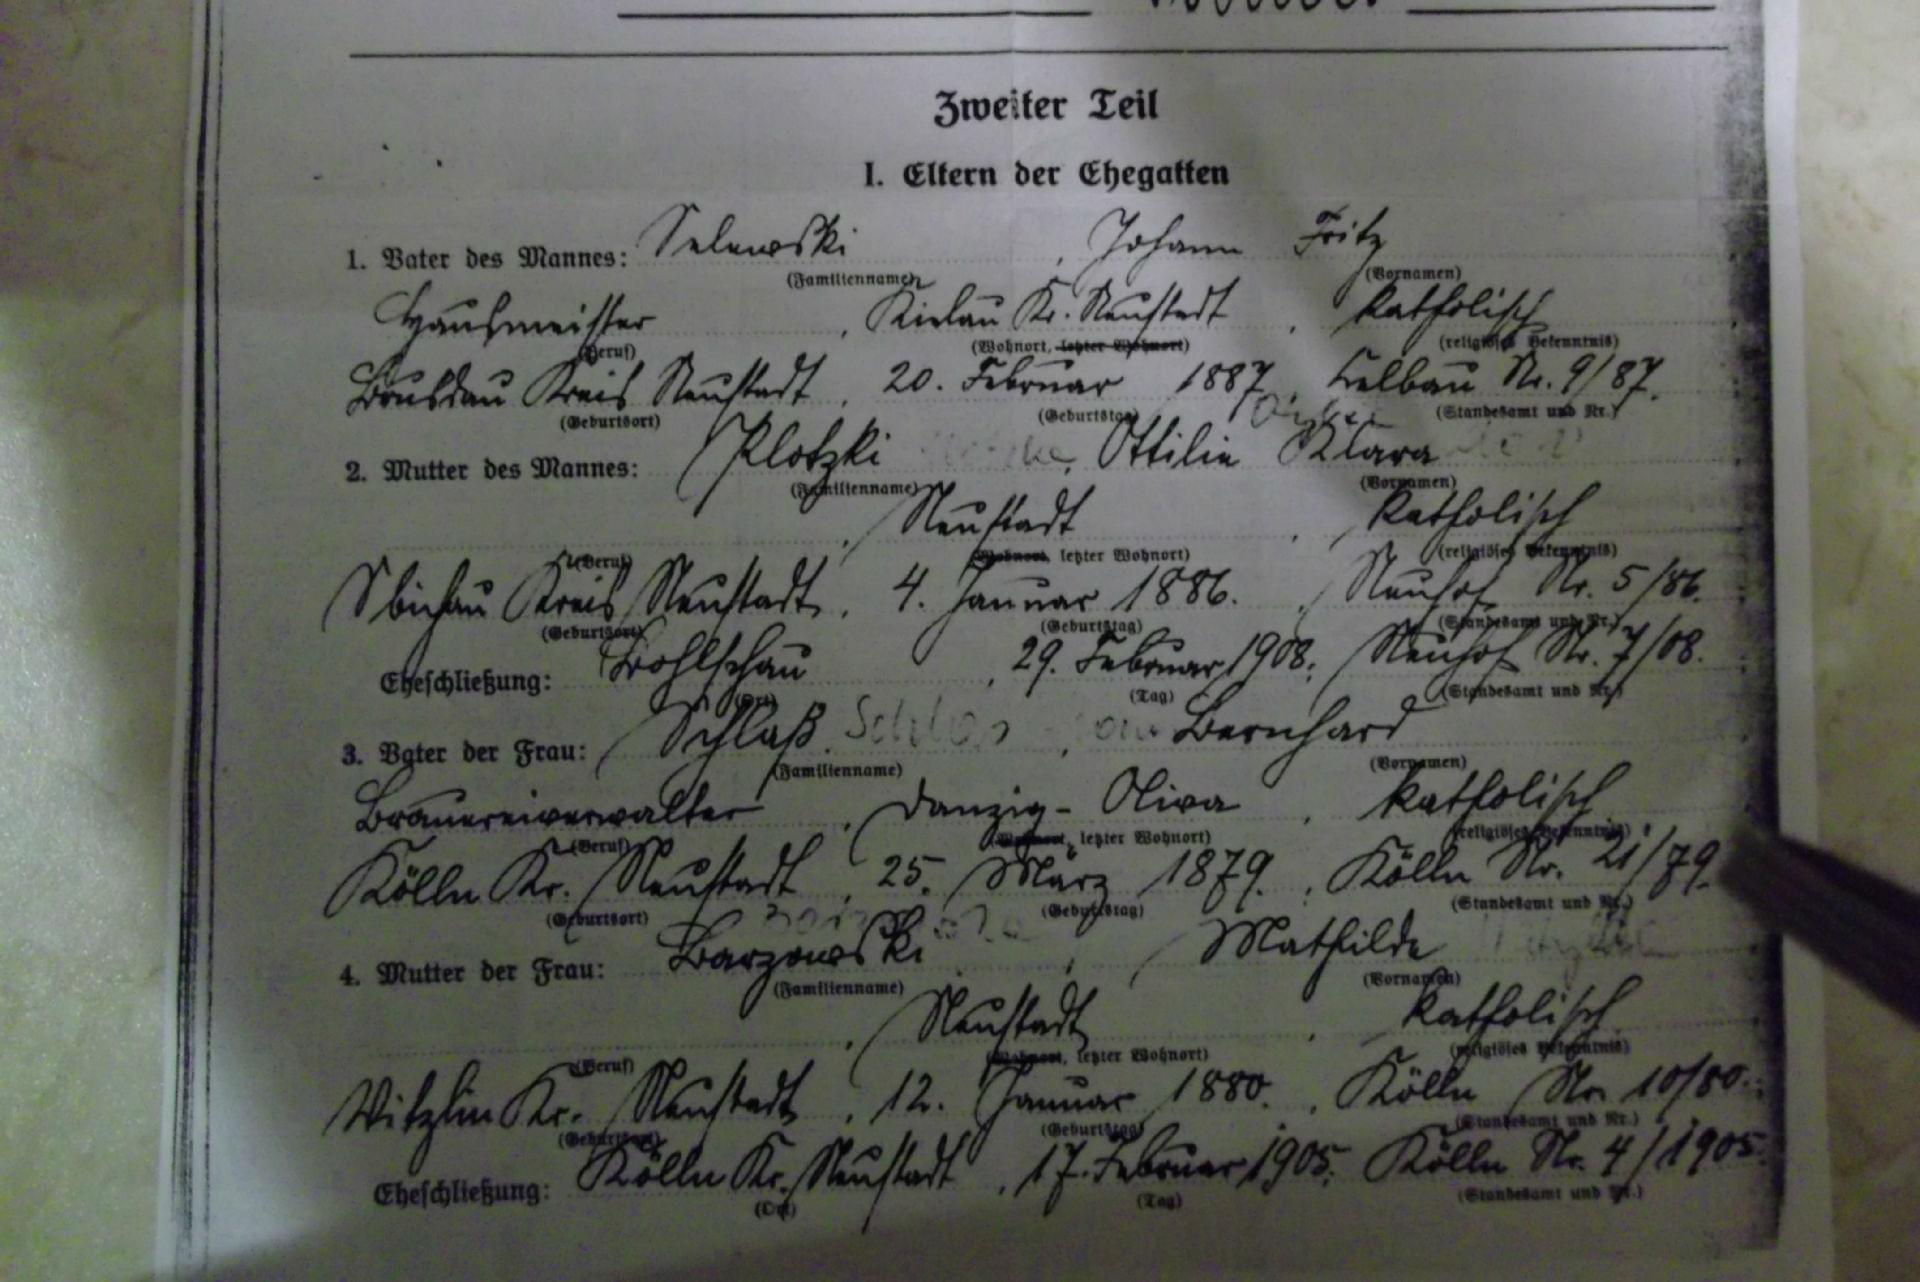 Zweiter Teil
I. Eltern der Ehegatten
1. Vater des Mannes: Selewski, Johann Fritz
(Familienname) (Vornamen)
Hausmeister, Kielau Kr. Neustadt, katholisch
(Beruf) (Wohnort, letzter Wohnort) (religiöses Bekenntnis)
Brusdau Kreis Neustadt, 20. Februar 1887, Nr. 9/87.
(Geburtsort) (Geburtstag) (Standesamt und Nr.)
2. Mutter des Mannes: Klotzki, Ottilie Klara
(Familienname) (Vornamen)
, Neustadt, katholisch
(Beruf) (Wohnort, letzter Wohnort) (religiöses Bekenntnis)
Sbichau Kreis Neustadt, 4. Januar 1886., Neuhof Nr. 5/86.
(Geburtsort) (Geburtstag) (Standesamt und Nr.)
Eheschließung: Bohlschau, 29. Februar 1908., Neuhof Nr. 7/08.
(Ort) (Tag) (Standesamt und Nr.)
3. Vater der Frau: Schlaß, Bernhard
(Familienname) (Vornamen)
Brauereiverwalter, Danzig-Oliva, katholisch
(Beruf) (Wohnort, letzter Wohnort) (religiöses Bekenntnis)
Kölln Kr. Neustadt, 25. März 1879., Kölln Nr. 21/79.
(Geburtsort) (Geburtstag) (Standesamt und Nr.)
4. Mutter der Frau: Barzowski, Mathilde
(Familienname) (Vornamen)
, Neustadt, katholisch
(Beruf) (Wohnort, letzter Wohnort) (religiöses Bekenntnis)
Witzlin Kr. Neustadt, 12. Januar 1880., Kölln Nr. 10/80.
(Geburtsort) (Geburtstag) (Standesamt und Nr.)
Eheschließung: Kölln Kr. Neustadt, 17. Februar 1905. Kölln Nr. 4/1905.
(Ort) (Tag) (Standesamt und Nr.)